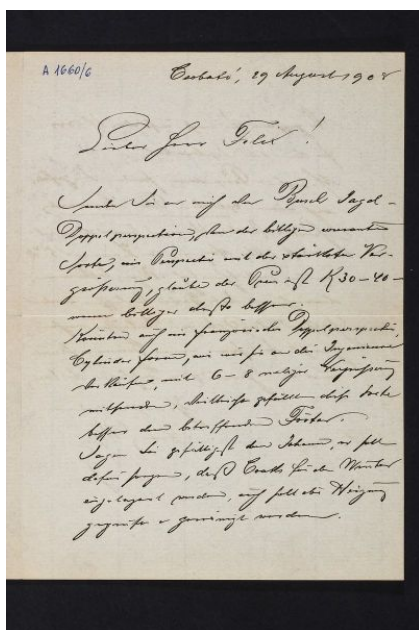 A 1660/6
Csorbató, 29 August 1908
Lieber Herr Felix!
Senden Sie an mich der Jagd-
Doppelperspectiven, von der billigen
Sorte, ein Perspectiv mit der stärksten Ver-
größerung, glaube der Preis ist K 30-40-
wenn billiger desto besser.
Könnten auch ein französisches Doppelperspectiv,
Cylinder Form, wie wir sie an die Ingenieure
verkaufen, mit 6-8 maliger Vergrößerung
mitsenden, vielleicht gefällt diese Sorte
besser dem betreffenden Förster.
Sagen Sie gefälligst dem Johann, er soll
dafür sorgen, daß Coaks für den Winter
eingelagert werden, auch soll die Heizung
gereinigt werden.